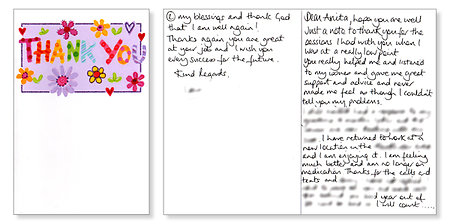 THANK YOU
© my blessings and thank God
that I am well again!
Thanks again you are great
at your job and I wish you
every success for the future.
Kind regards,
Dear Anita, hope you are well
Just a note to thank you for the
sessions I had with you when I
was at a really low point
you really helped me and listened
to my worries and gave me great
support and advice and never
made me feel as though I couldn't
tell you my problems.
I have returned to work at a
new location in the
and I am enjoying it. I am feeling
much better and am no longer on
medication Thanks for the calls and
texts and
year out of
I will count .....